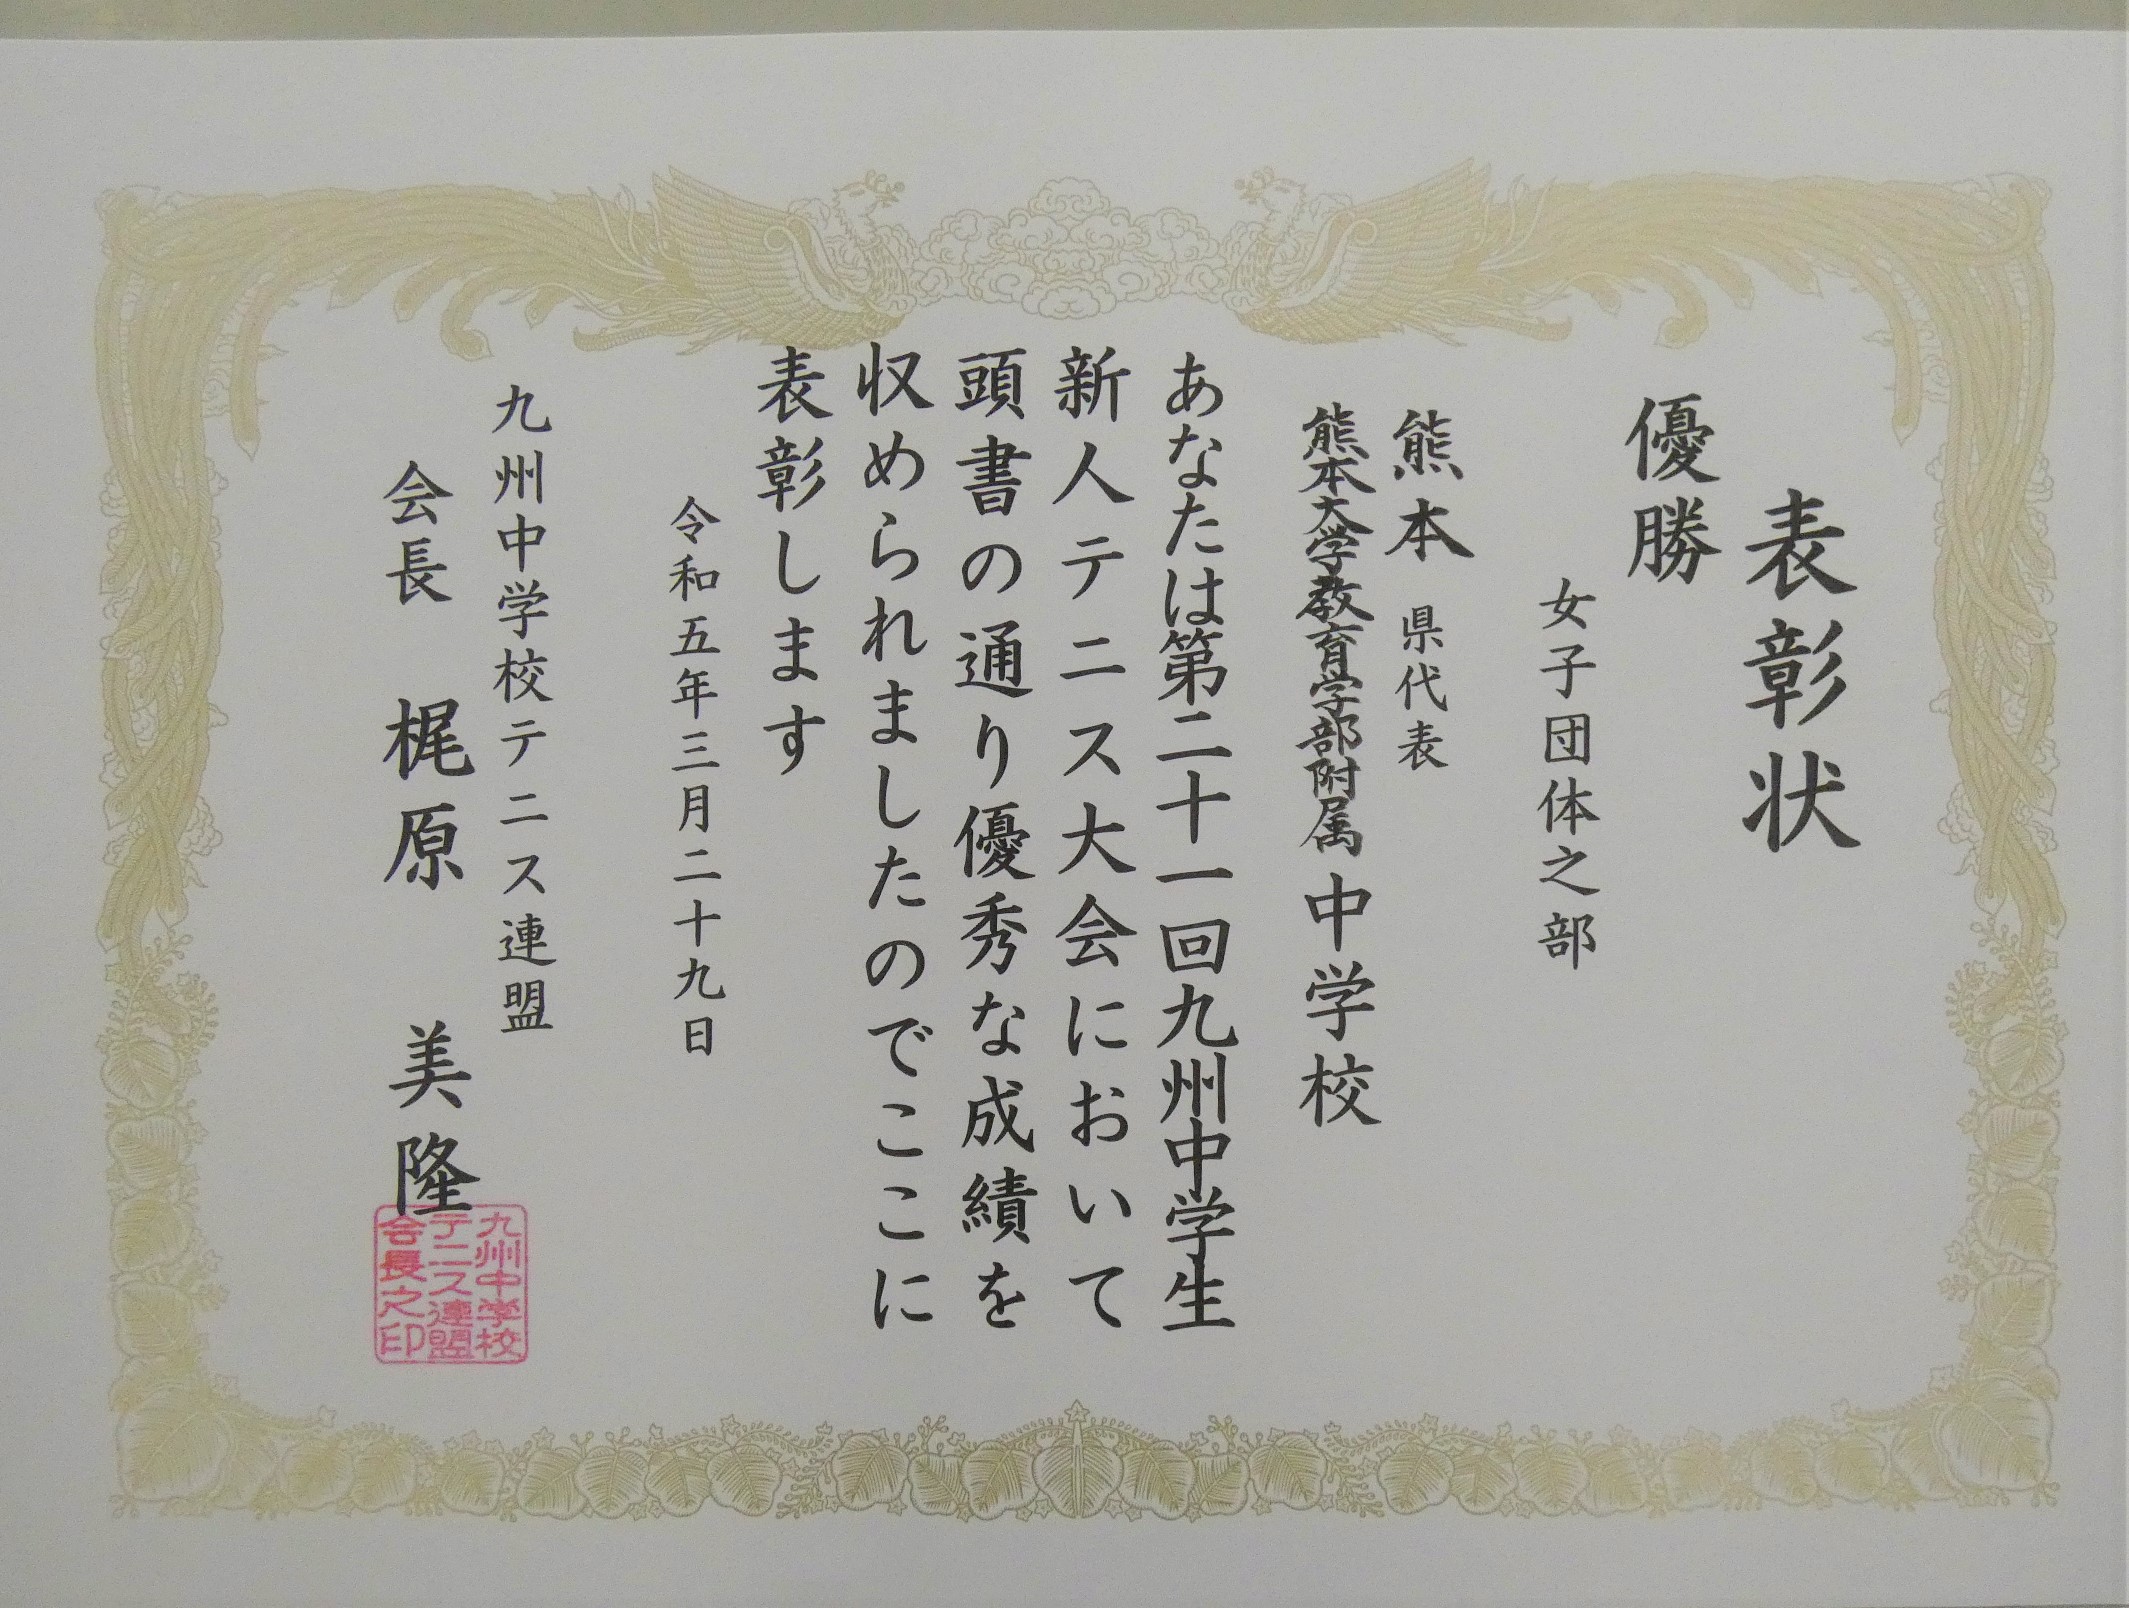 表彰状
優勝
女子団体之部
熊本県代表
熊本大学教育学部附属中学校
あなたは第二十一回九州中学生
新人テニス大会において
頭書の通り優秀な成績を
収められましたのでここに
表彰します
令和五年三月二十九日
九州中学校テニス連盟
会長 梶原 美隆
九州中学校
テニス連盟
会長之印